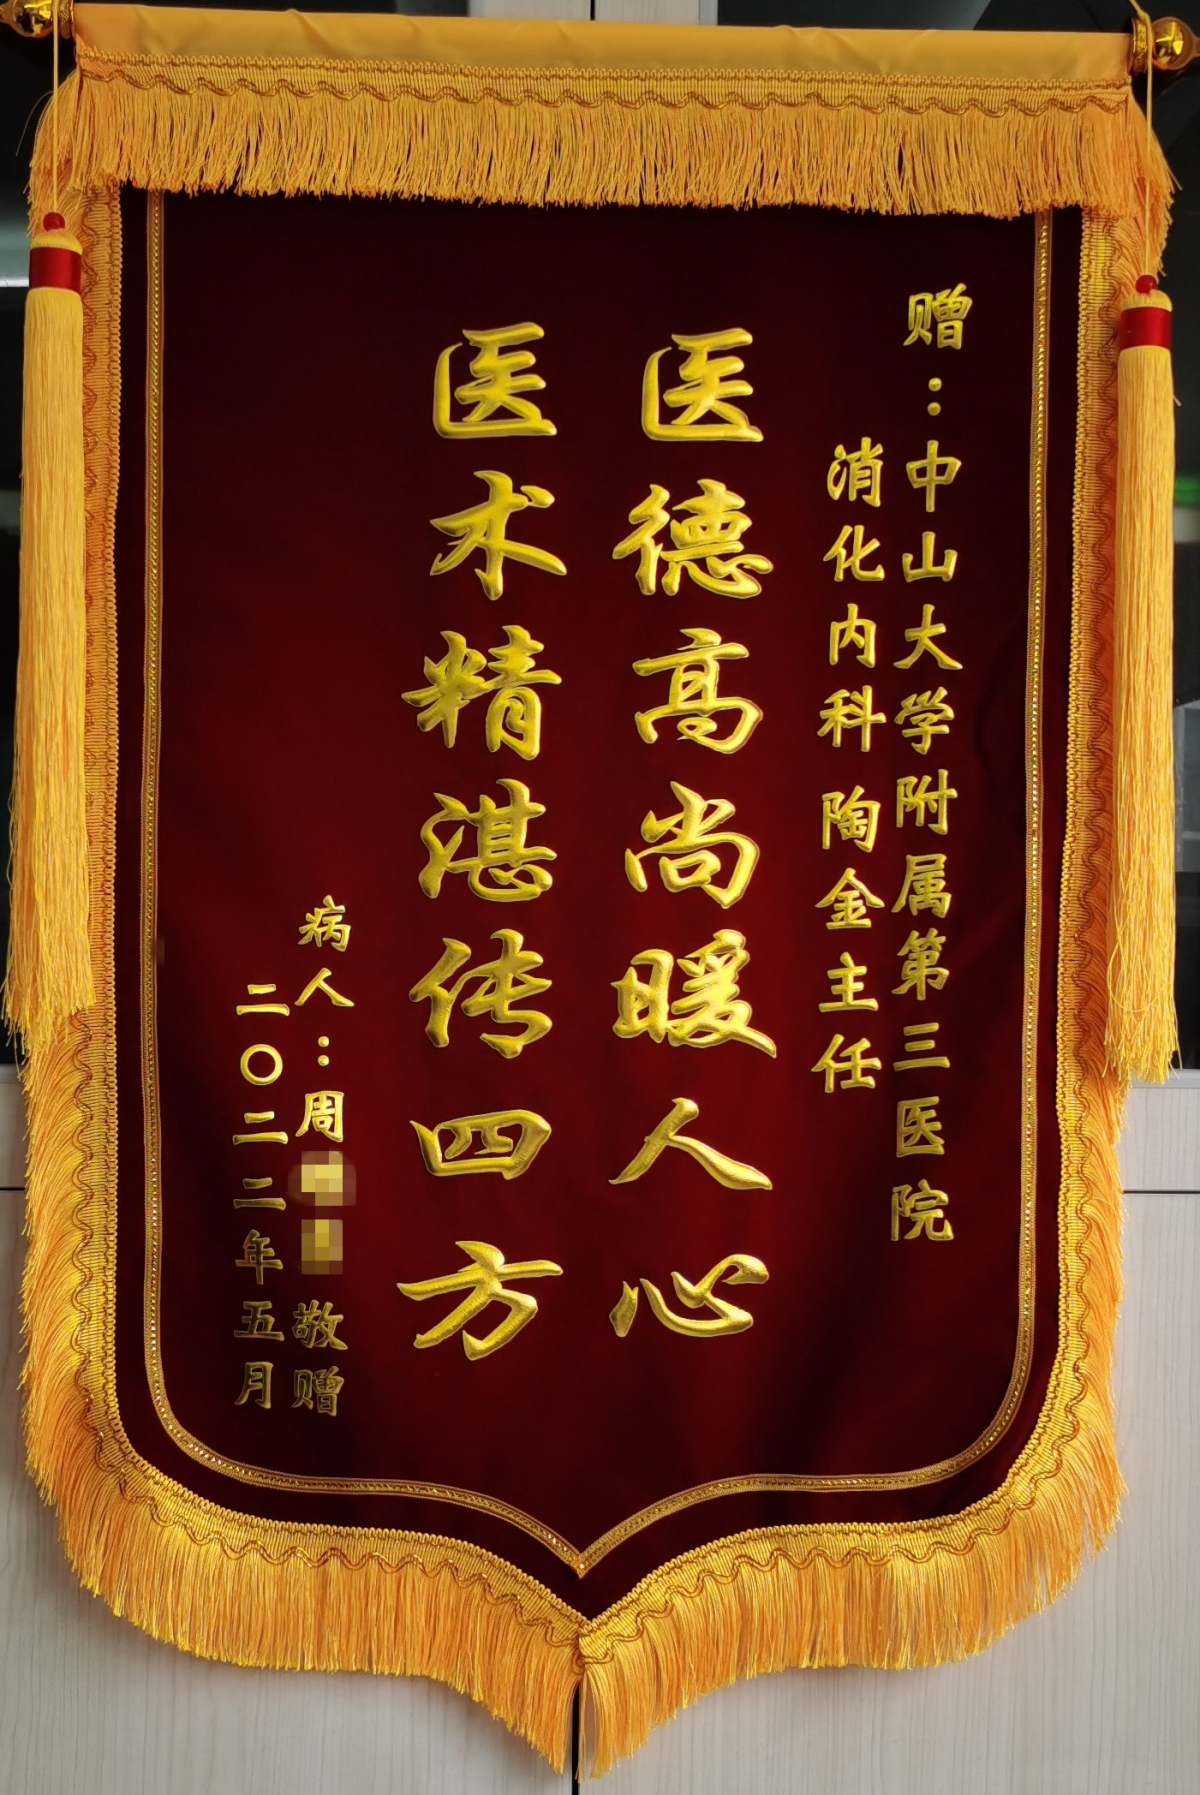 赠：中山大学附属第三医院
消化内科 陶金主任
医德高尚暖人心
医术精湛传四方
病人：周 敬赠
二〇二二年五月